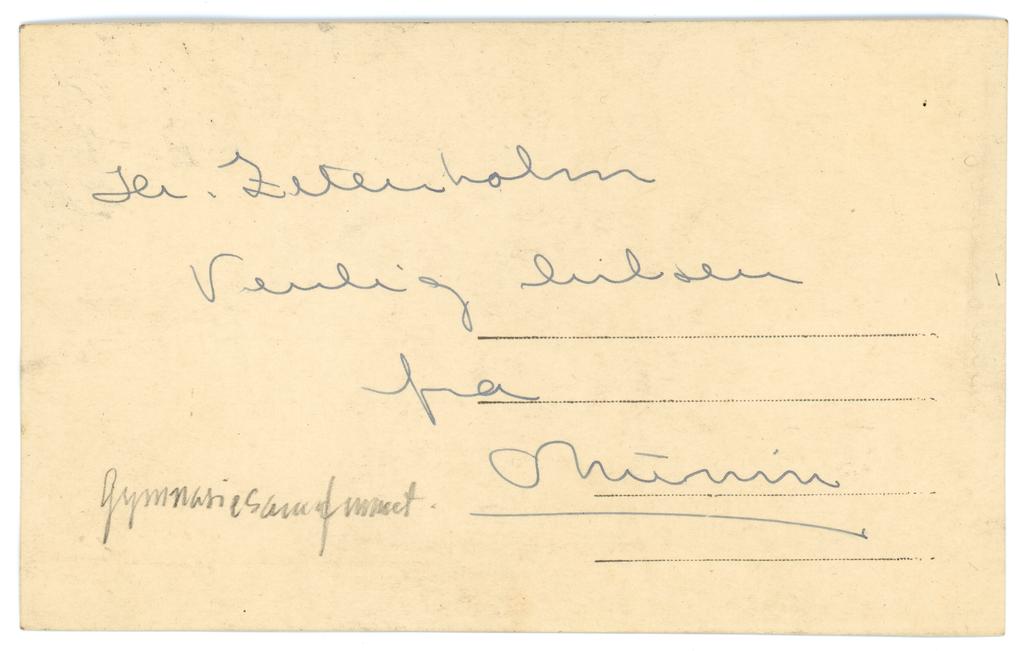 Hr. Zetenholm
Venlig hilsen
fra
Minnin
Gymnasiesamfunnet.